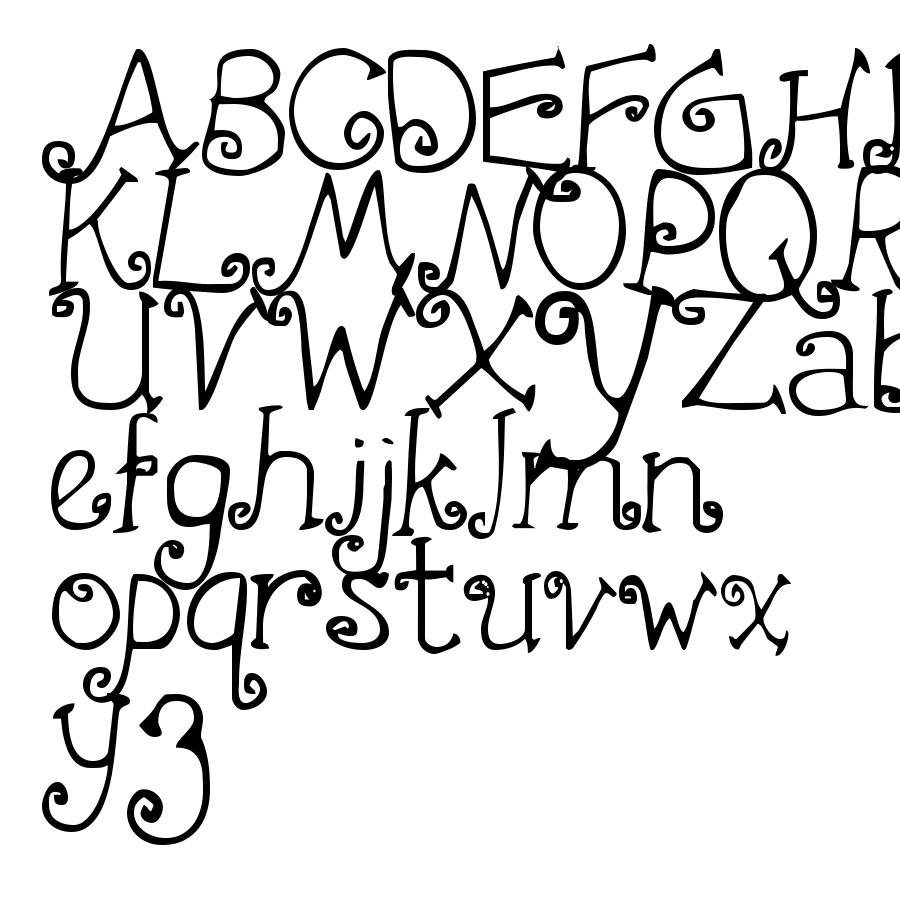 ABCDEFGH
KLMNOPQR
UVWXYZab
efghijklmn
opqrstuvwx
yz